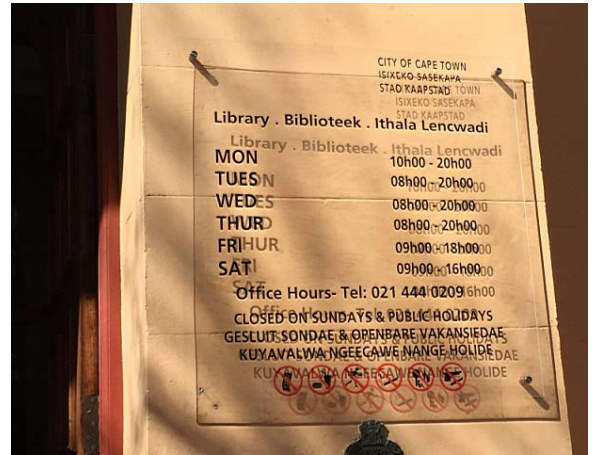 CITY OF CAPE TOWN
ISIXEKO SASEKAPA
STAD KAAPSTAD
Library . Biblioteek . Ithala Lencwadi
MON 10h00 - 20h00
TUES 08h00 - 20h00
WED 08h00 - 20h00
THUR 08h00 - 20h00
FRI 09h00 - 18h00
SAT 09h00 - 16h00
Office Hours- Tel: 021 444 0209
CLOSED ON SUNDAYS & PUBLIC HOLIDAYS
GESLUIT SONDAE & OPENBARE VAKANSIEDAE
KUYAVALWA NGEECAWE NANGE HOLIDE